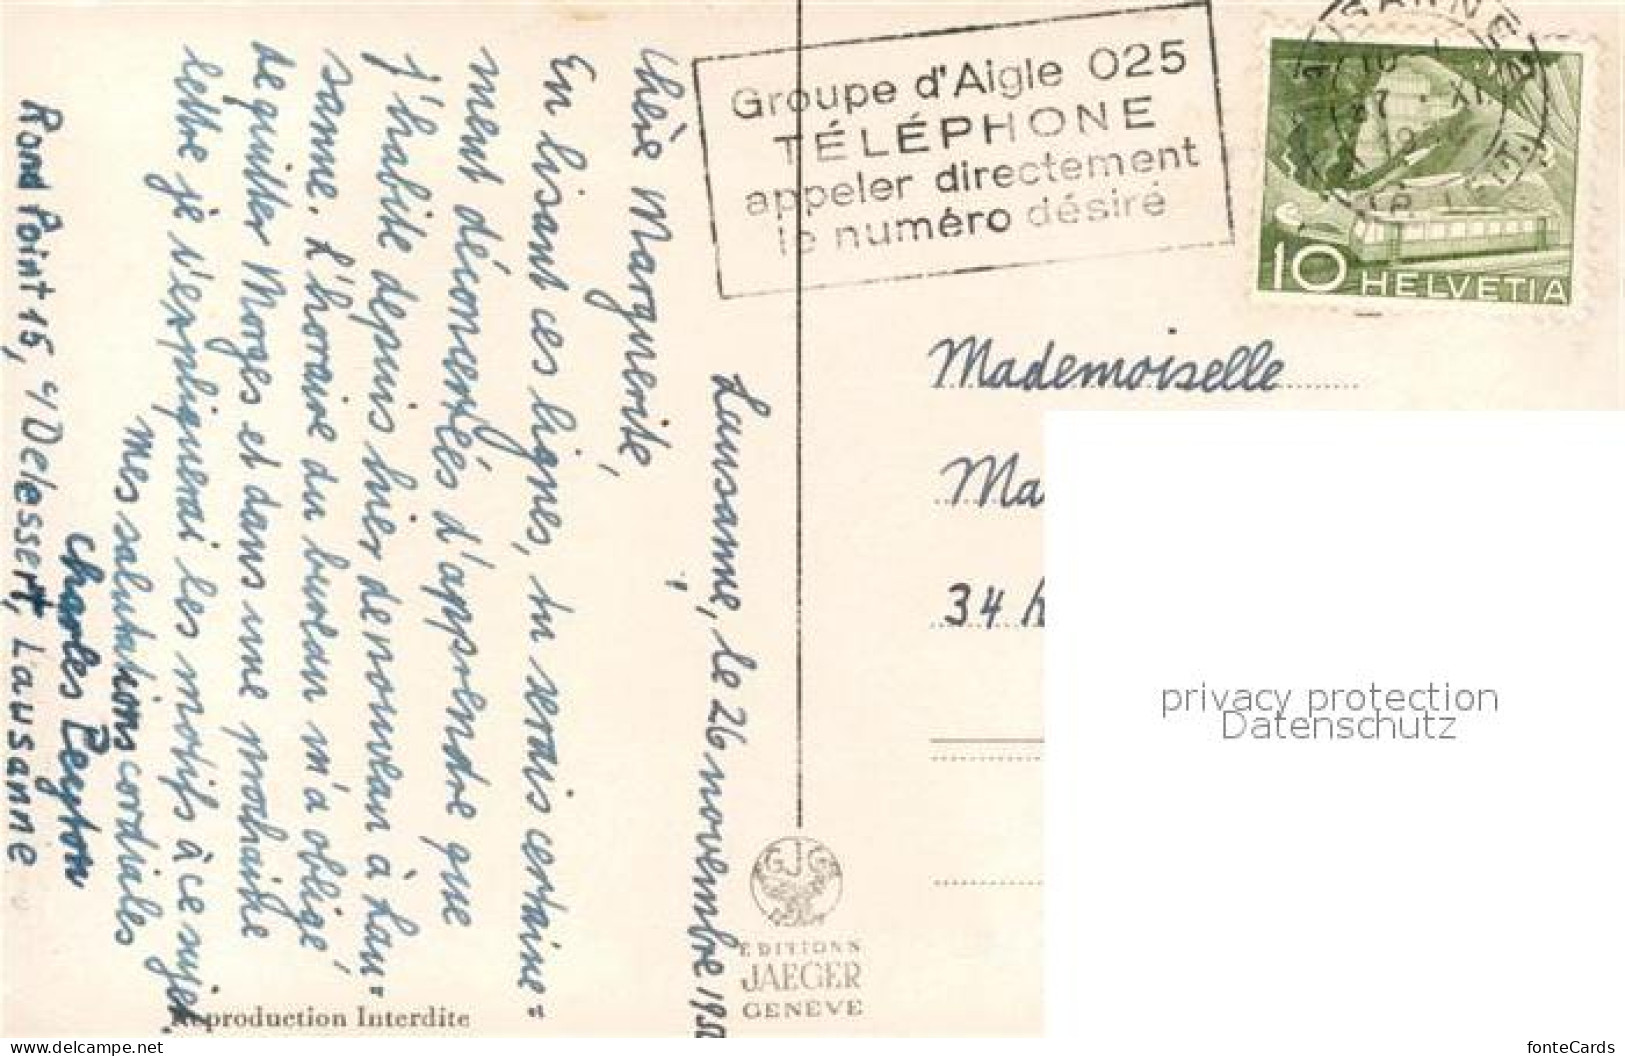 Lausanne, le 26 novembre 1950
Chère Marguerite,
En lisant ces lignes, tu serais certaine"
ment déconcertés d'apprendre que
j'habite depuis hier de nouveau à Lau"
sanne. L'horaire du bureau m'a obligé
de quitter Morges et dans une prochaine
lettre je t'expliquerai les motifs à ce sujet.
mes salutations cordiales
Charles Peyton
Rond Point 15, c/ Delessert, Lausanne
Reproduction Interdite
Groupe d'Aigle 025
TÉLÉPHONE
appeler directement
le numéro désiré
LAUSANNE
XI
10 HELVETIA
Mademoiselle
Ma
34
privacy protection
Datenschutz
GJG
EDITIONS
JAEGER
GENÈVE
https://www.delcampe.net
fonteCards